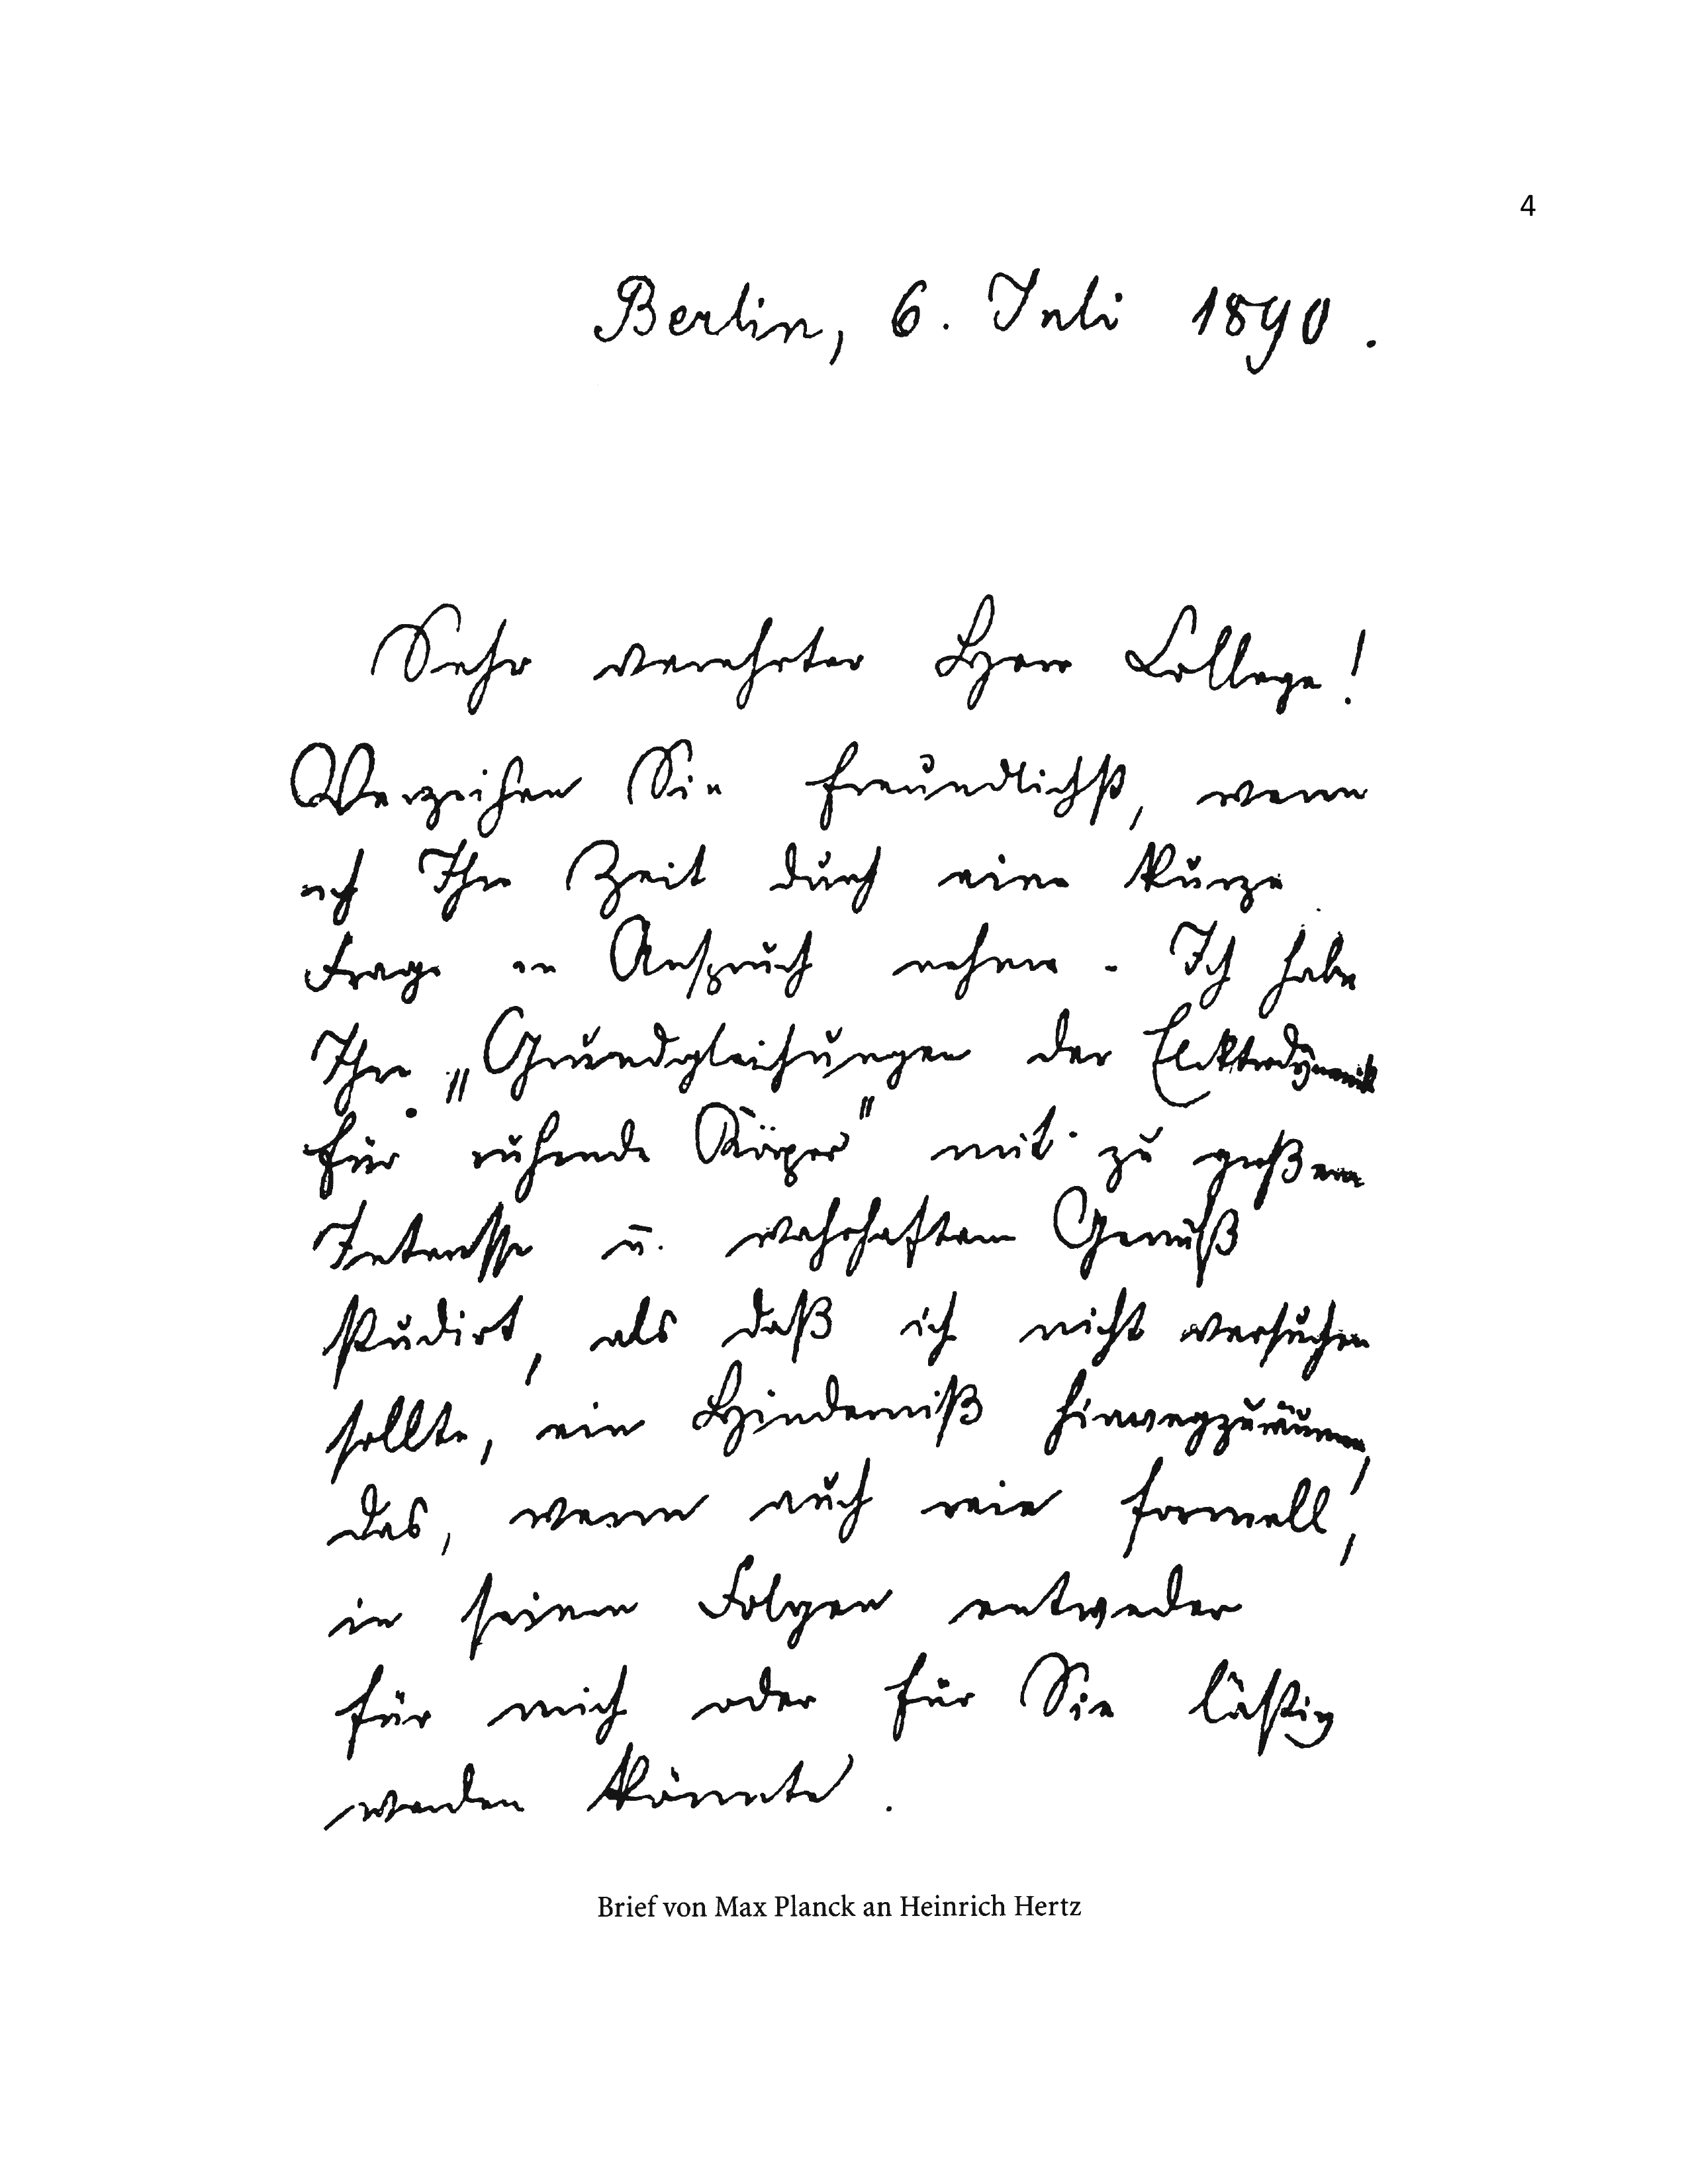 4
Berlin, 6. Juli 1890.
Sehr verehrter Herr College!
Verzeihen Sie freundlichst, wenn
ich Ihre Zeit durch eine kurze
Frage in Anspruch nehme. Ich habe
Ihre „Grundgleichungen der Elektrodynamik
für ruhende Körper" mit zu großem
Interesse u. wahrhaftem Genuß
studirt, als daß ich nicht versuchen
sollte, ein Hinderniß hinwegzuräumen,
das, wenn auch rein formell,
in seinen Folgen entweder
für mich oder für Sie lästig
werden könnte.
Brief von Max Planck an Heinrich Hertz